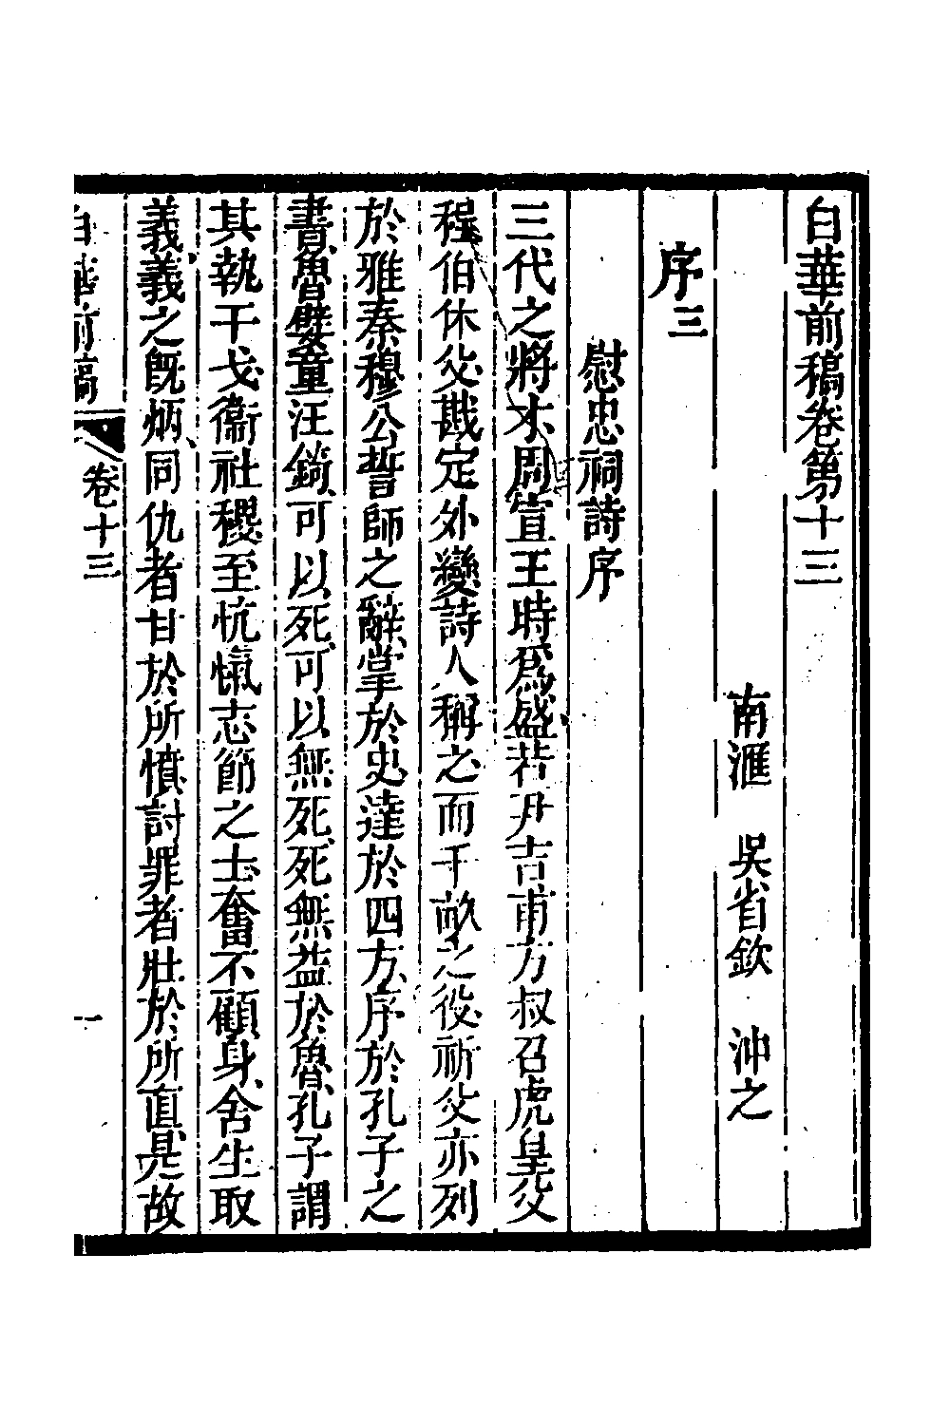 白華前稿卷第十三
南滙　吳省欽　沖之
序三
慰忠祠詩序
三代之將才周宣王時爲盛若尹吉甫方叔召虎皇父
程伯休父戡定外變詩人稱之而千畝之役祈父亦列
於雅秦穆公誓師之辭掌於史達於四方序於孔子之
書魯嬖童汪錡可以死可以無死死無益於魯孔子謂
其執干戈衞社稷至忼愾志節之士奮不顧身舍生取
義義之旣炳同仇者甘於所憤討罪者壯於所直是故
白華前稿　卷十三　一